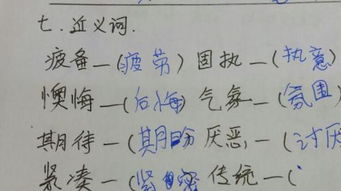 七.近义词.
疲惫—(疲劳) 固执—(执意)
懊悔—(后悔) 气象—(氛围)
期待—(期盼 厌恶—(讨厌
紧凑—(紧密 传统—(